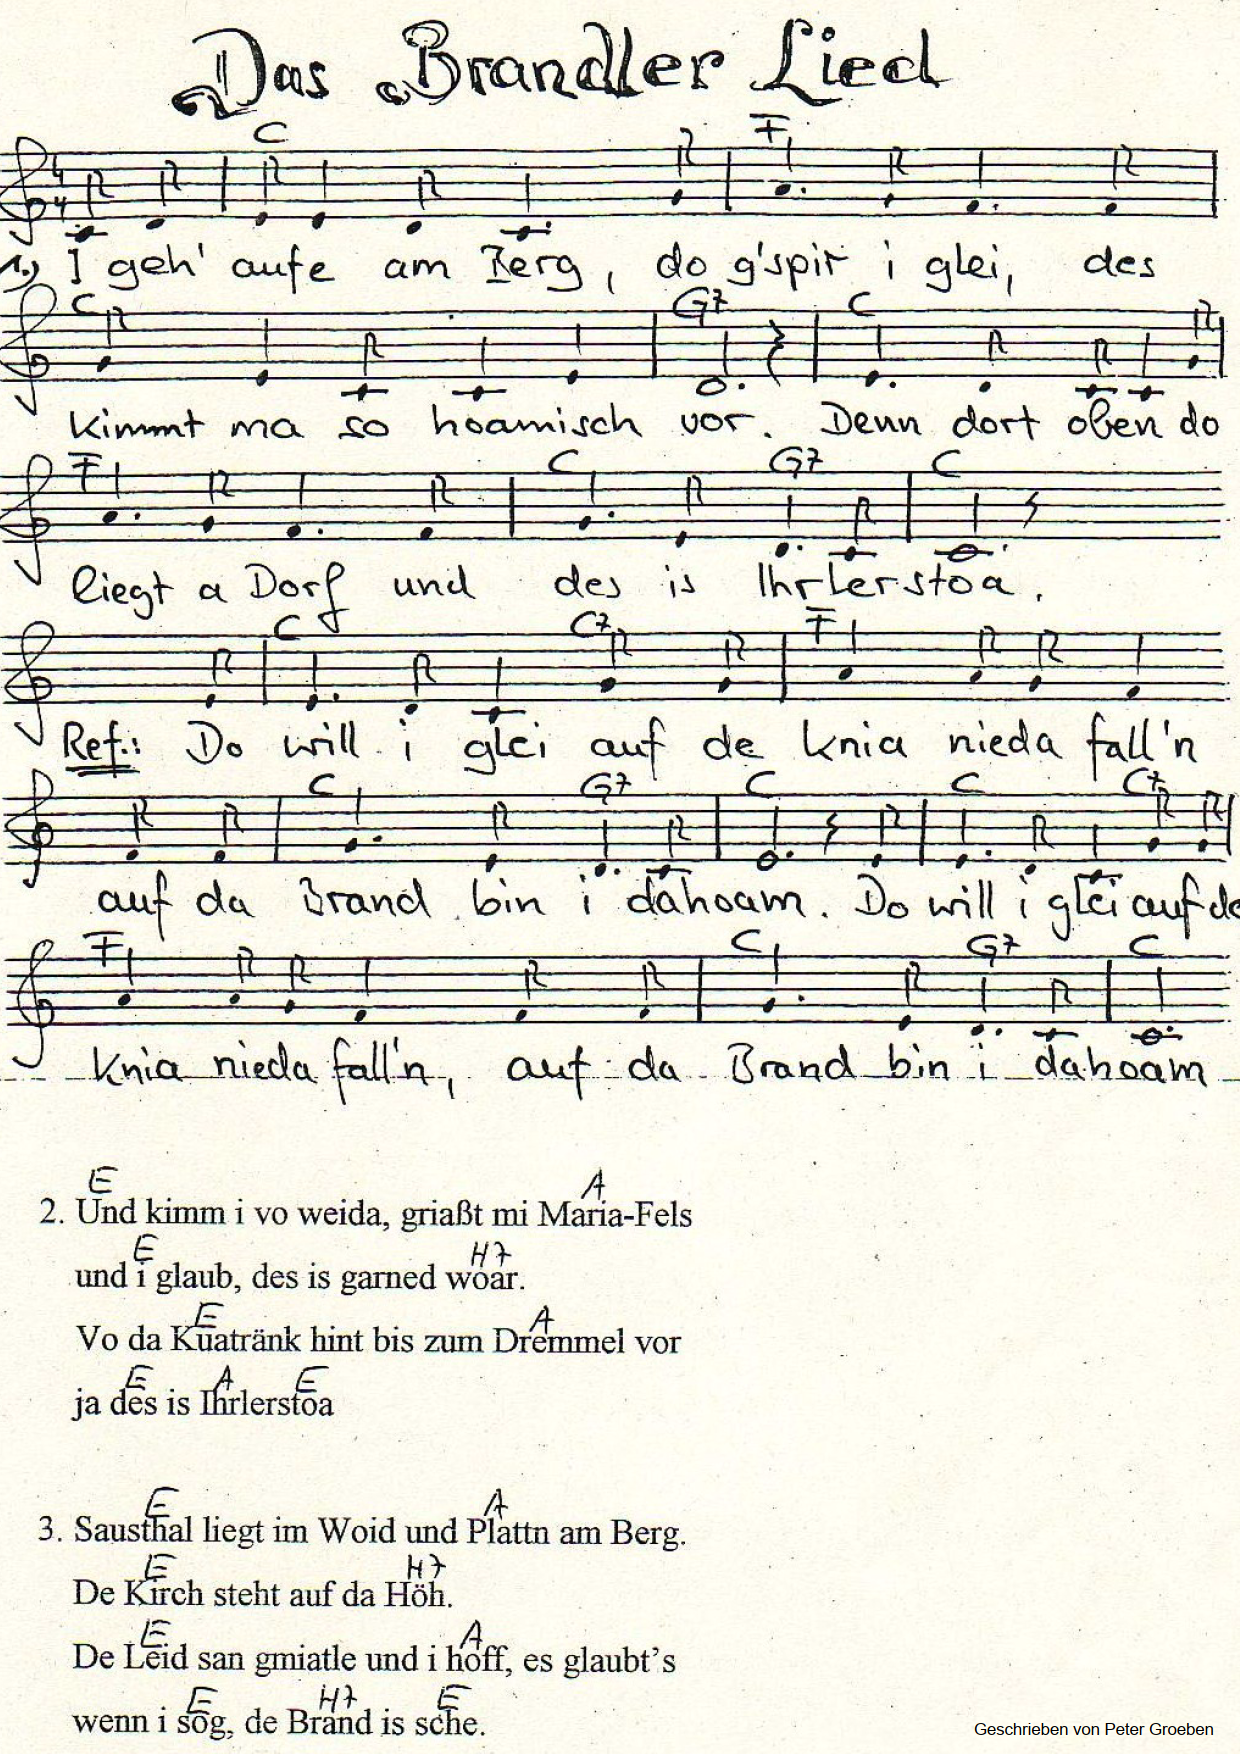 Das Brandler Lied
C F
1.) I geh' aufe am Berg, do g'spir i glei, des
C G7 C
kimmt ma so hoamisch vor. Denn dort oben do
F C G7 C
liegt a Dorf und des is Ihrlerstoa.
C C7 F
Ref.: Do will i glei auf de Knia nieda fall'n
C G7 C C C7
auf da Brand bin i dahoam. Do will i glei auf de
F C G7 C
Knia nieda fall'n, auf da Brand bin i dahoam
E A
2. Und kimm i vo weida, griaßt mi Maria-Fels
E H7
und i glaub, des is garned woar.
E A
Vo da Kuatränk hint bis zum Dremmel vor
E A E
ja des is Ihrlerstoa
E A
3. Sausthal liegt im Woid und Plattn am Berg.
E H7
De Kirch steht auf da Höh.
E A
De Leid san gmiatle und i hoff, es glaubt's
E H7 E
wenn i sog, de Brand is sche.
Geschrieben von Peter Groeben